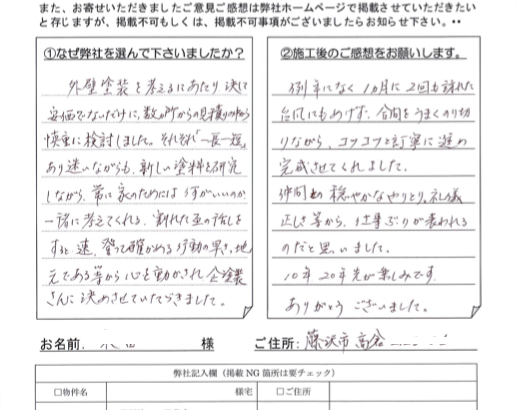 また、お寄せいただきましたご意見ご感想は弊社ホームページで掲載させていただきたい
と存じますが、掲載不可もしくは、掲載不可事項がございましたらお知らせ下さい。••
①なぜ弊社を選んで下さいましたか？
外壁塗装を考えるにあたり 決して
安価でないだけに、数か所からの見積りの中から
慎重に検討しました。それぞれ「一長一短」
あり迷いながらも、新しい塗料を研究
しながら、常に家のためには うすがいいのか
一緒に考えてくれる、割れた瓦の話しを
すると速、登って確かめる行動の早さ、地
元である等から心を動かされ 塗装
さんに決めさせていただきました。
②施工後のご感想をお願いします。
例年になく 1カ月に2回も訪れた
台風にもめげず、合間をうまくのり切
りながら、コツコツと訂寧に進め
完成させてくれました。
仲間との 穏やかなやりとり、礼儀
正しさ等から、仕事ぶりが表われる
のだと思いました。
10年 20年先が楽しみです。
ありがとう ございました。
お名前: 様
ご住所: 藤沢市 高倉
弊社記入欄（掲載 NG 箇所は要チェック）
□物件名 様宅 □ご住所